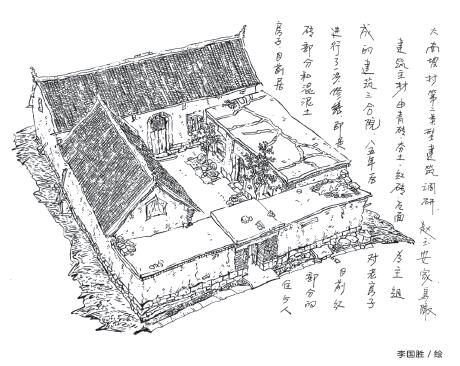 大南坡村第三类型建筑调研.赵玉安家鸟瞰
建筑主材由青砖.夯土.红砖.瓦面为主组
成的建筑三合院.八五年后对老房子
进行了修缮即是目前红
砖部分和混泥土部分的
房子目前居住5人
李国胜 / 绘